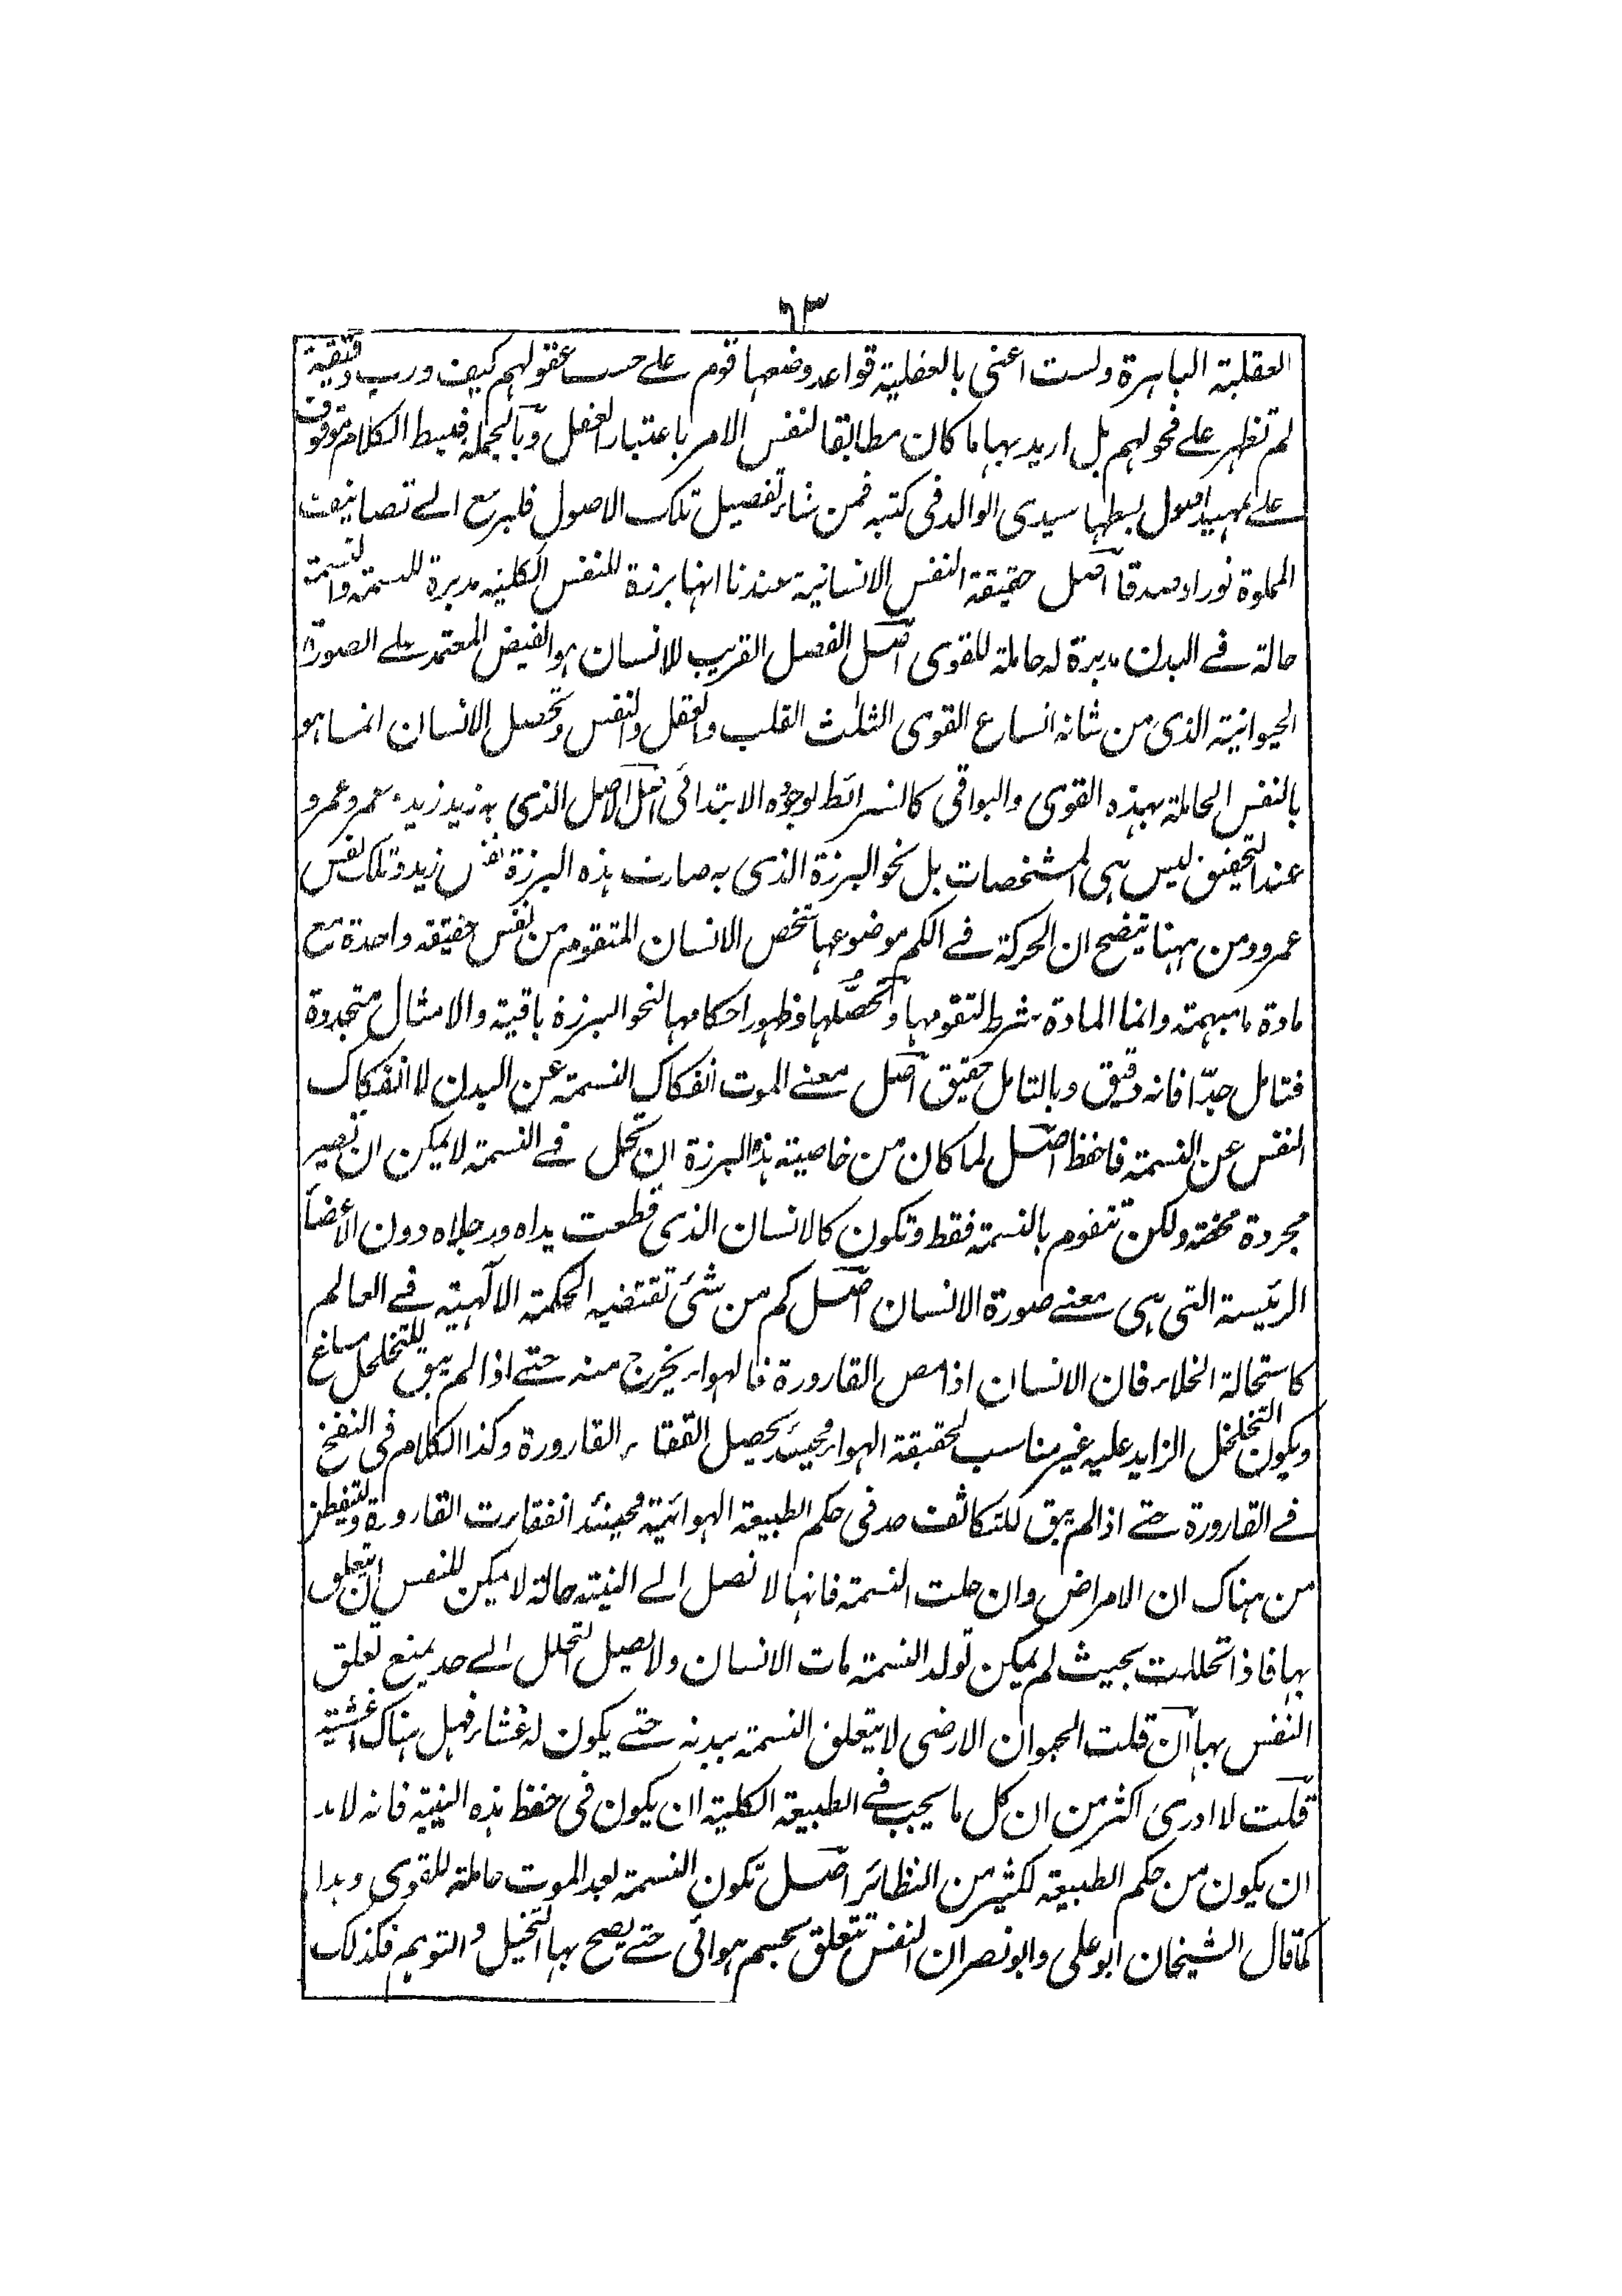 ٦٣
العقلية الباهرة ولست اعنى بالعقلية قواعد وضعها قوم على حسب عقولهم كيف ورب دقيقة
لم تظهر على فحولهم بل اريد بها ما كان مطابقا لنفس الامر باعتبار العقل وبالجملة فبسط الكلام موقوف
على تمهيد اصول بسطها سيدى الوالد فى كتبه فمن شاء تفصيل تلك الاصول فليرجع الى تصانيفه
المملوة نورا وصدقا اصل حقيقة النفس الانسانية عندنا انها برزة للنفس الكلية مدبرة للنسمة والنسمة
حالة فى البدن مدبرة له حاملة للقوى اصل الفصل القريب للانسان هو الفيض المعتمد على الصورة
الحيوانية الذى من شانه انساع القوى الثلث القلب والعقل والنفس وتحصل الانسان انما هو
بالنفس الحاملة بهذه القوى والبواقى كالشرائط لوجوده الابتدائى اصل الاصل الذى به زيد زيد وعمرو عمرو
عند التحقيق ليس هى المشخصات بل نحو البرزة الذى به صارت هذه البرزة نفس زيد وتلك نفس
عمرو ومن ههنا يتضح ان الحركة فى الكم موضوعها شخص الانسان المتقوم من نفس حقيقة واحدة مع
مادة ما مبهمة وانما المادة شرط لتقومها وتحصلها وظهور احكامها لنحو البرزة باقية والامثال متجددة
فتامل جدّا فانه دقيق وبالتامل حقيق اصل معنى الموت انفكاك النسمة عن البدن لا انفكاك
النفس عن النسمة فاحفظ اصل لما كان من خاصية هذه البرزة ان تحل فى النسمة لا يمكن ان تصير
مجردة محضة ولكن تتقوم بالنسمة فقط وتكون كالانسان الذى قطعت يداه ورجلاه دون الاعضاء
الرئيسة التى هى معنى صورة الانسان اصل كم من شئ تقتضيه الحكمة الالهية فى العالم
كاستحالة الخلاء فان الانسان اذا مص القارورة فالهواء يخرج منه حتى اذا لم يبق للتخلخل مساغ
ويكون التخلخل الزايد عليه غير مناسب لحقيقة الهواء فحينئذ يحصل القارورة وكذا الكلام فى النفخ
فى القارورة حتى اذا لم يبق للتكاثف حد فى حكم الطبيعة الهوائية فحينئذ انفقاءرت القارورة ولتفطن
من هناك ان الامراض وان حلت النسمة فانها لا تصل الى البنية حالة لا يمكن للنفس ان تتعلق
بها فاذا تحللت بحيث لم يمكن تولد النسمة مات الانسان ولا يصل التحلل الى حد يمنع تعلق
النفس بها ان قلت الحيوان الارضى لا يتعلق النسمة ببدنه حتى يكون له غشاء فهل هناك اغشية
قلت لا ادرى اكثر من ان كل ما يجب فى الطبيعة الكلية ان يكون فى حفظ هذه البنية فانه لابد
ان يكون من حكم الطبيعة لكثير من النظائر اصل تكون النسمة بعد الموت حاملة للقوى وهذا
كما قال الشيخان ابو على وابو نصر ان النفس تتعلق بجسم هوائى حتى يصح بها التخيل والتوهم فكذلك